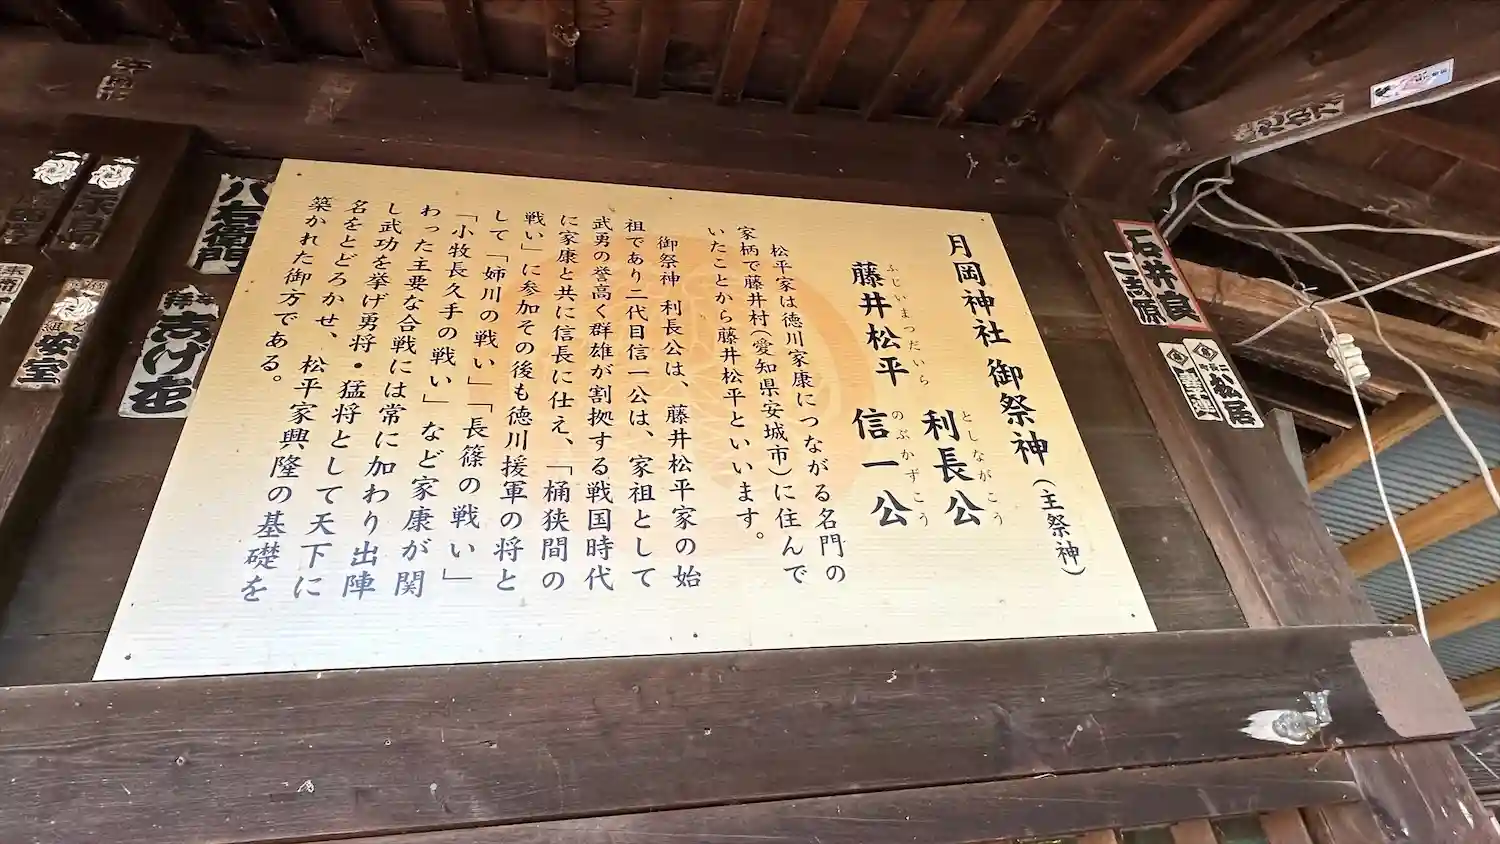 月岡神社 御祭神(主祭神)
藤井松平 利長公
ふじいまつだいら としながこう
信一公
のぶかずこう
松平家は徳川家康につながる名門の
家柄で藤井村(愛知県安城市)に住んで
いたことから藤井松平といいます。
御祭神 利長公は、藤井松平家の始
祖であり二代目信一公は、家祖として
武勇の誉高く群雄が割拠する戦国時代
に家康と共に信長に仕え、「桶狭間の
戦い」に参加その後も徳川援軍の将と
して「姉川の戦い」「長篠の戦い」
「小牧長久手の戦い」など家康が関
わった主要な合戦には常に加わり出陣
し武功を挙げ勇将・猛将として天下に
名をとどろかせ、松平家興隆の基礎を
築かれた御方である。
石井良
二吉原
松居
八右衛門
安室